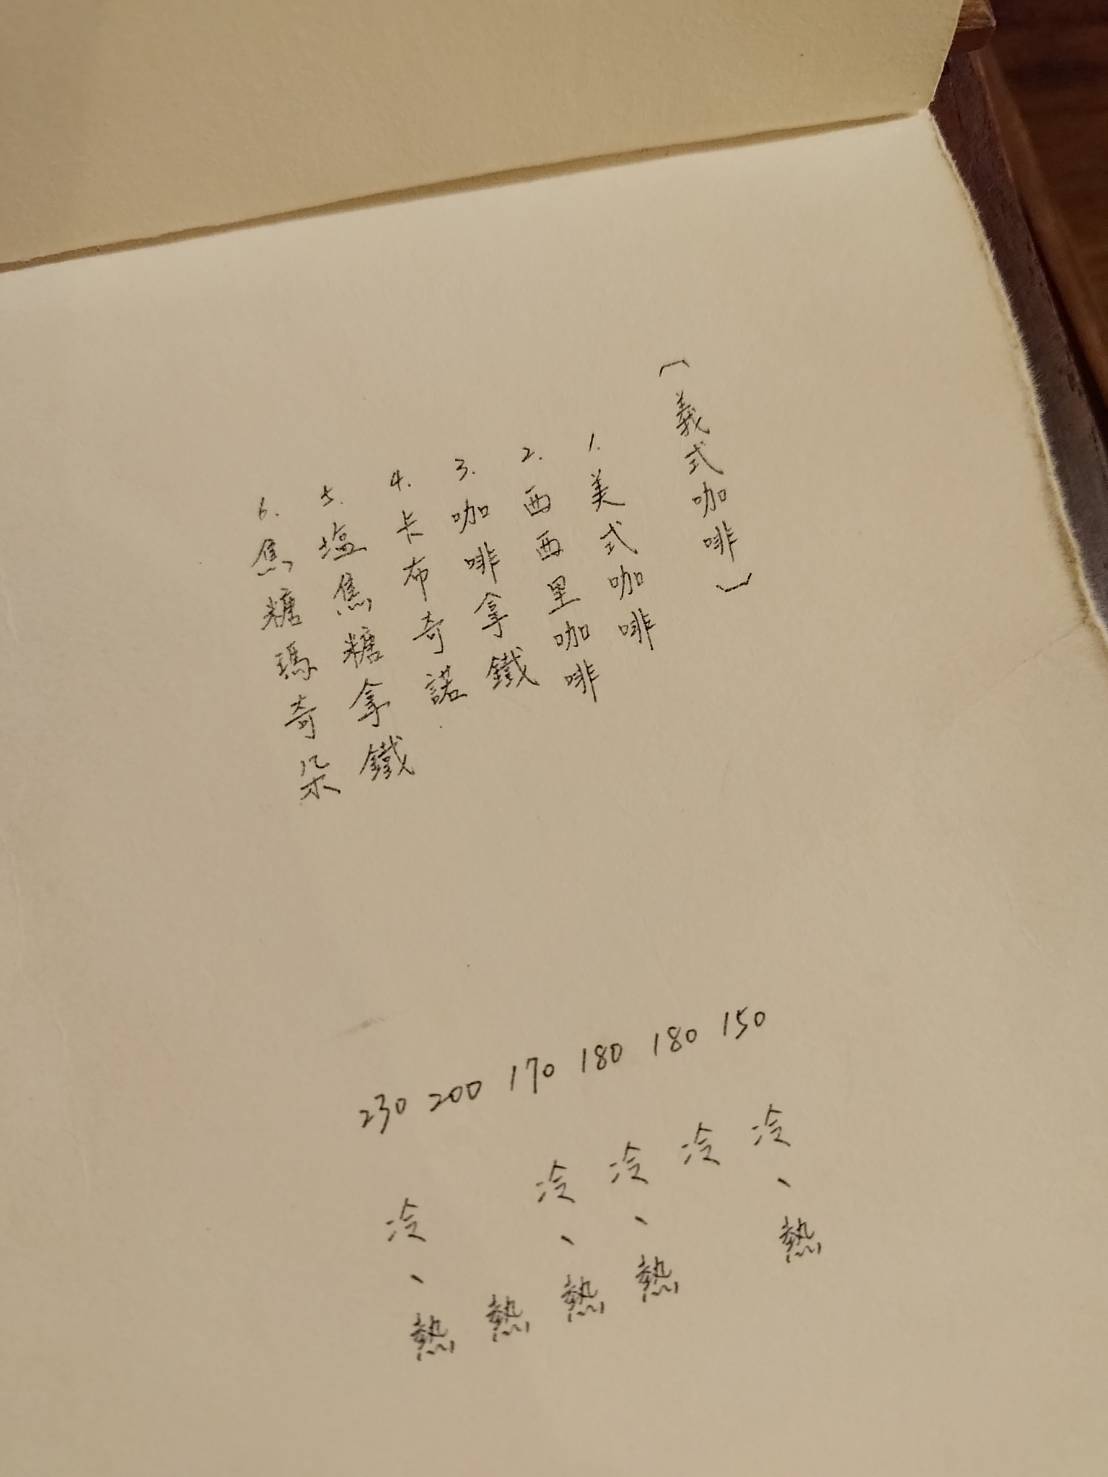 （義式咖啡）
1. 美式咖啡 150 冷、熱
2. 西西里咖啡 180 冷
3. 咖啡拿鐵 180 冷、熱
4. 卡布奇諾 170 冷、熱
5. 塩焦糖拿鐵 200 熱
6. 焦糖瑪奇朵 230 冷、熱